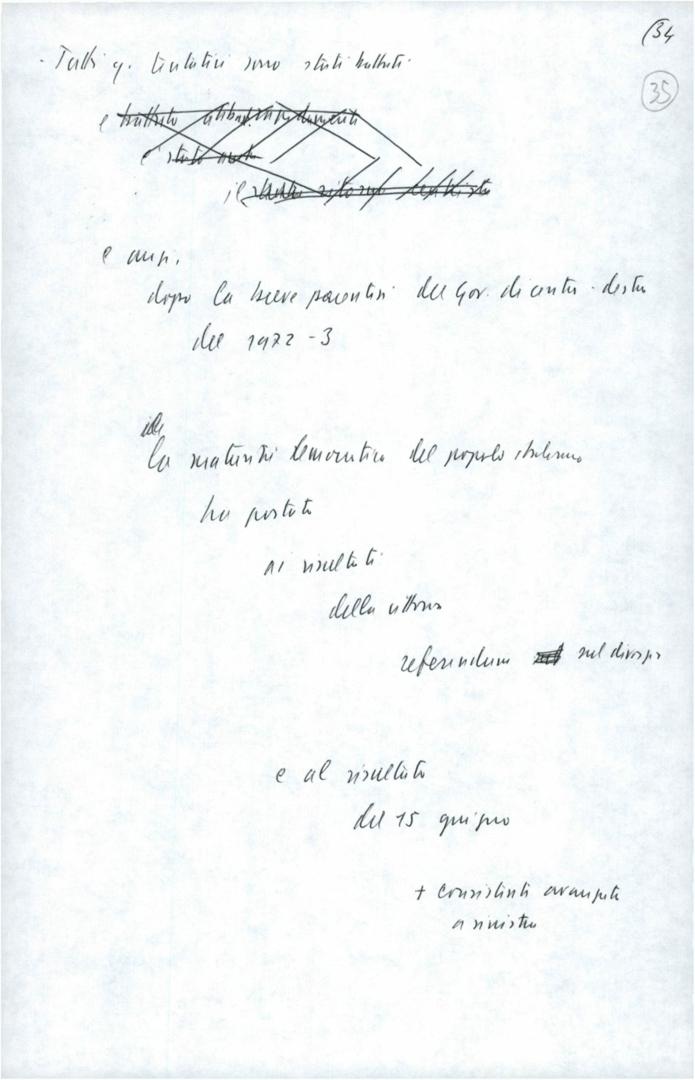 (34
35
- Tutti q. tentativi sono stati battuti.
e
e anzi,
dopo la breve parentesi del Gov. di centro-destra
del 1972-3
la maturità democratica del popolo italiano
ha portato
ai risultati
della vittoria
referendum sul divorzio
e al risultato
del 15 giugno
+ consistente avanzata
a sinistra